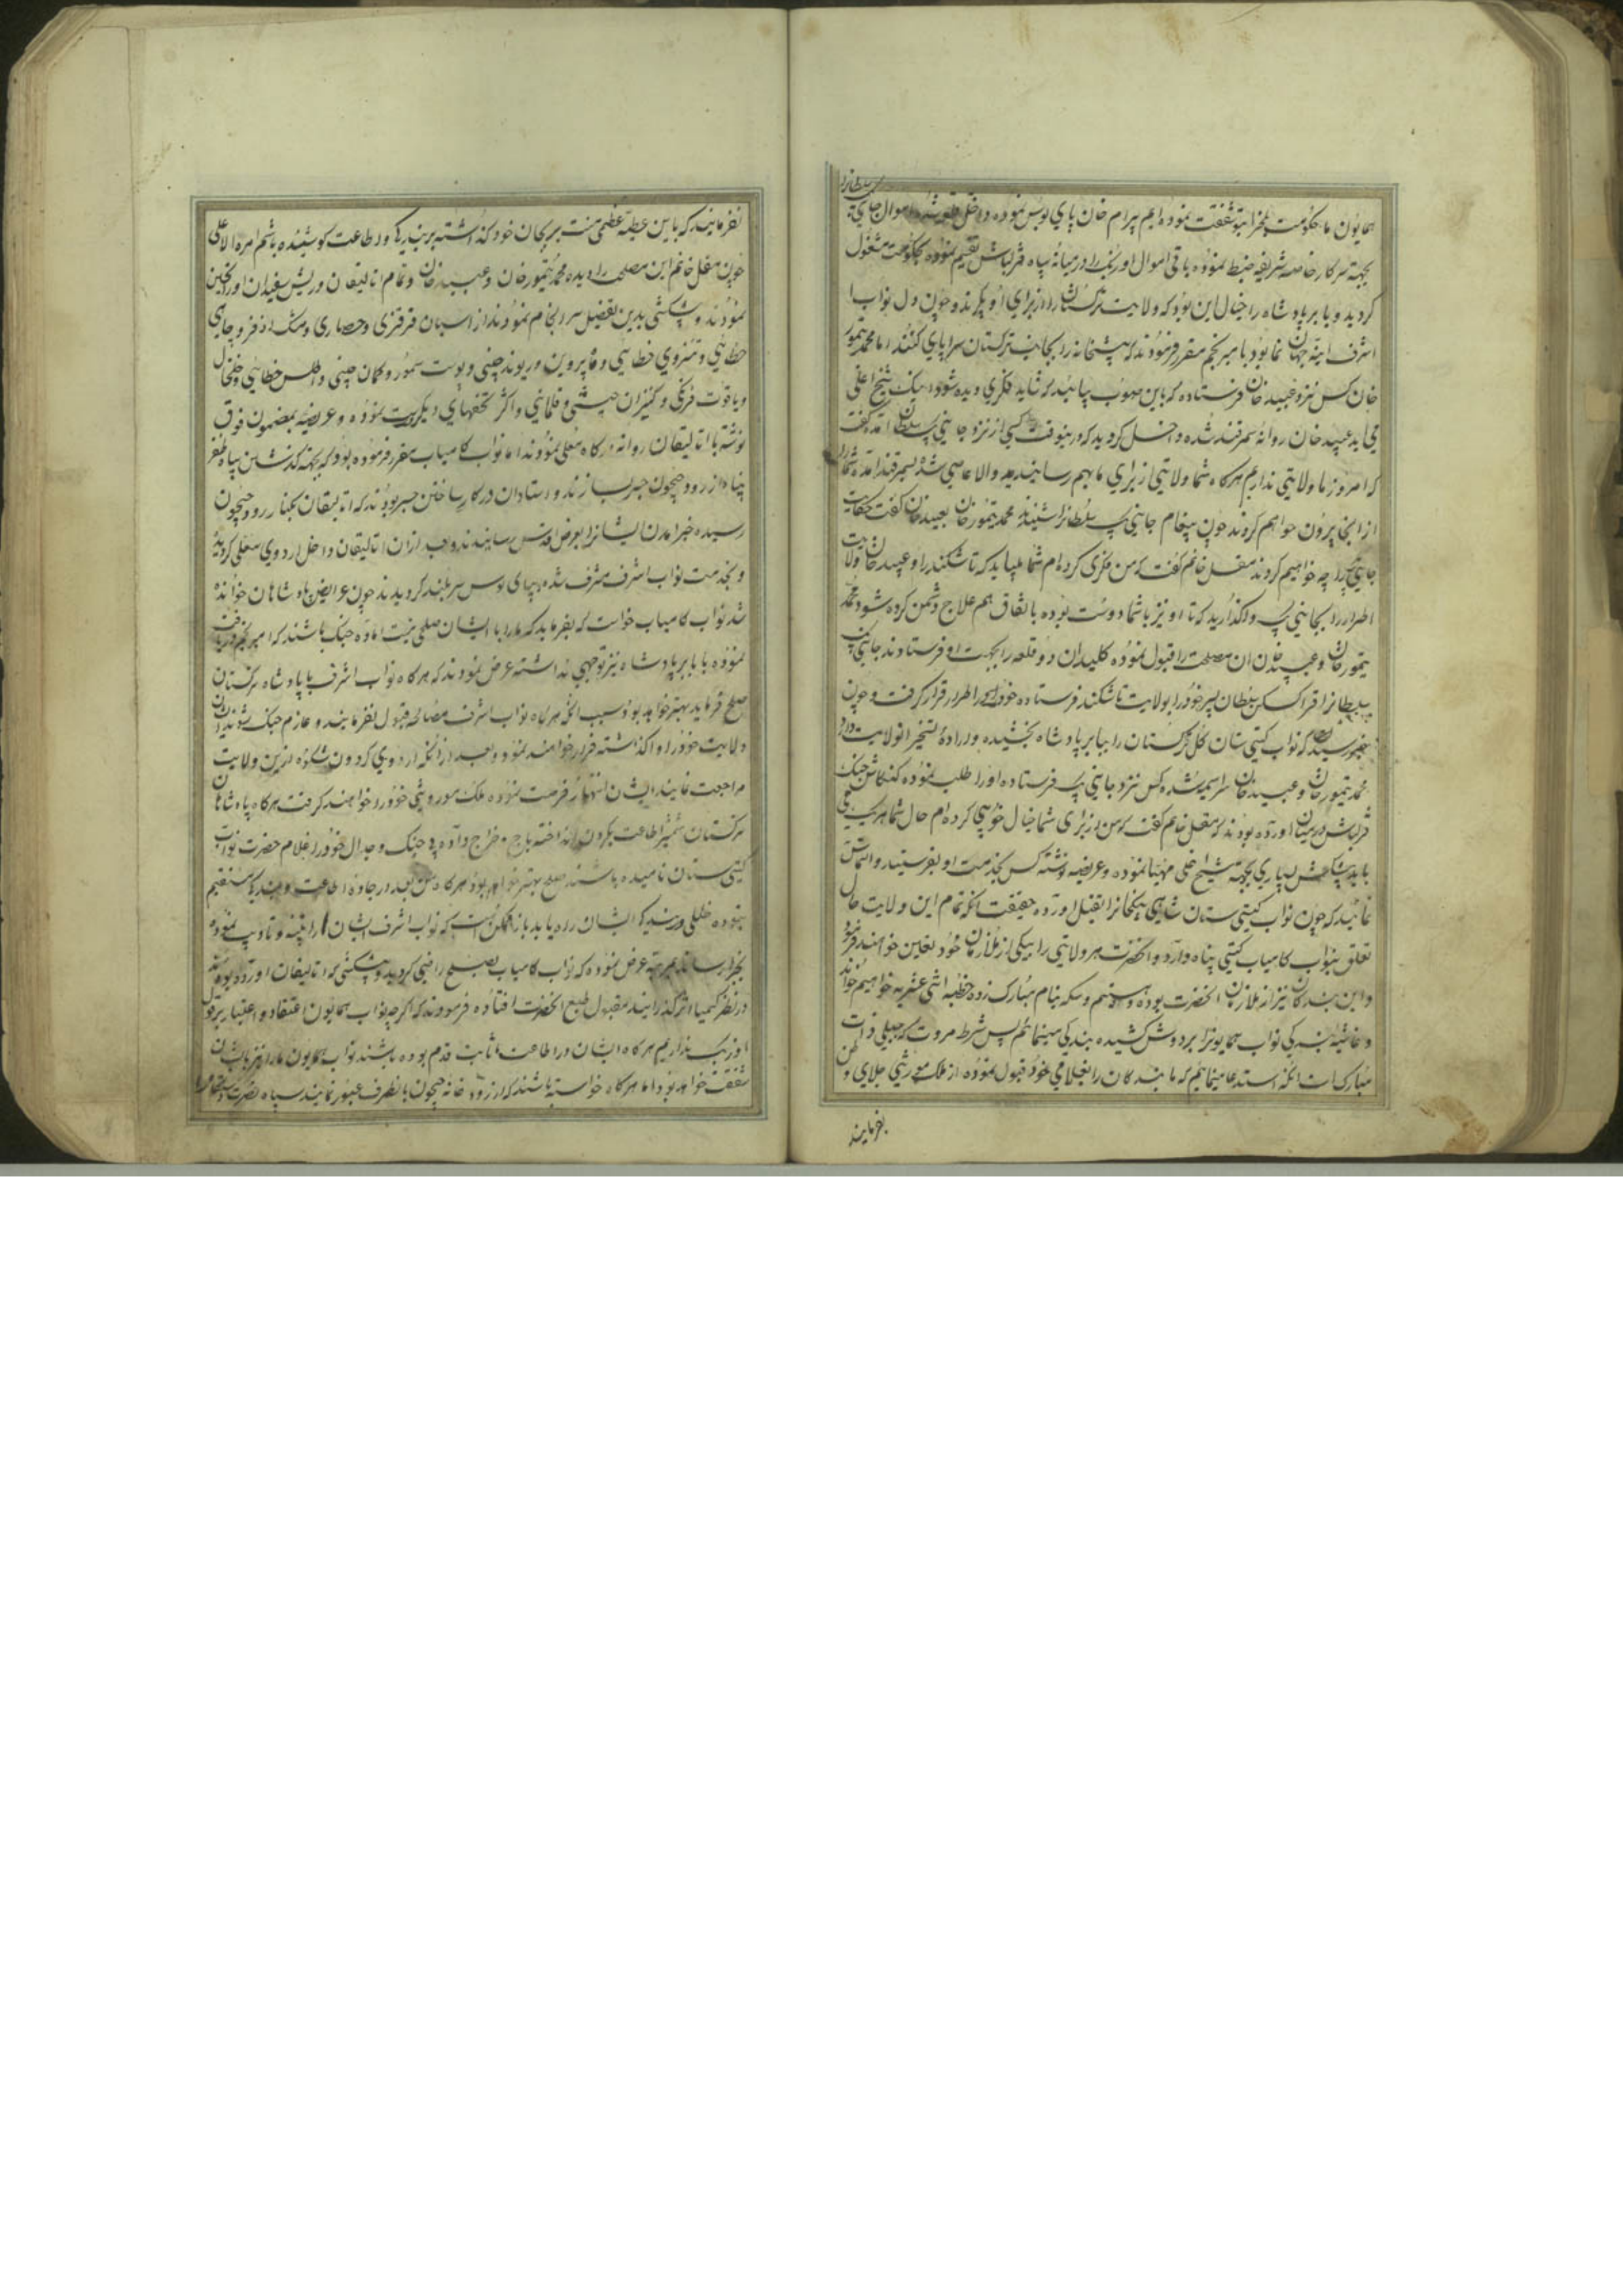 همایون ما حکومت بلخ را بتو شفقت نموده ایم بیرام خان پای بوس نموده داخل قلعه شده اموال جانی بیک سلطانرا
بجهة سرکار خاصه شریفه ضبط نموده باقی اموال اوزبک را در میانهٔ سپاه قزلباش تقسیم نموده بحکومت مشغول
کردید و بابر پادشاه را خیال این بود که ولایت ترکستان را از برای او بگیرند و چون دل نواب
اشرف اینهٔ جهان نما بود با میر نجم مقرر فرمودند که پیشخانه را بجانب ترکستان سراپای کنند اما محمد تیمور
خان کس نزد عبید خان فرستاده که باین صوب بیائید که شاید فکری دیده شود اینک شیخ اغلی
می اید عبید خان روانهٔ سمرقند شده داخل کردید که درینوقت کسی از نزد جانی بیک سلطان آمد کفت
که امروز ما ولایتی نداریم هرکاه شما ولایتی از برای ما بهم رسانیدید والا عاصی شده بسمرقند آمده شما را
از انجا بیرون خواهم کرد چون پیغام جانی بیک سلطانرا شنیدند محمد تیمور خان بعبید خان کفت حکایت
جانی بیک را چه خواهیم کرد مغل خانم کفت که من فکری کرده ام شما میباید که تاشکند را و عبید خان ولایت
اطرار را بجانی بیک واکذارید که تا او نیز با شما دوست بوده باتفاق هم علاج دشمن کرده شود محمد
تیمور خان و عبید خان ان مصلحت را قبول نموده کلیدان دو قلعه را بجهت او فرستادند جانی بیک
سلطانرا قزاسکن سلطان پسر خود را بولایت تاشکند فرستاده خود در اطرار قرار کرفت و چون
خبر رسید که نواب کیتی ستان کل ترکستان را ببابر پادشاه بخشیده و ارادهٔ تسخیر انولایت دارد
محمد تیمور خان و عبید خان سراسیمه شده کس نزد جانی بیک فرستاده او را طلب نموده کنکاش جنک
قزلباش در میان اورده بودند که مغل خانم کفت که من از برای شما خیال خوبی کرده ام حال شما هر یک
باید پیشکش بسیاری بجهة شیخ اغلی مهیا نموده و عریضه نوشته کس بخدمت او بفرستید و التماس
نمائید که چون نواب کیتی ستان شاهی بیکخانرا بقتل اورده حقیقت انکه تمام این ولایت حال
تعلق بنواب کامیاب کیتی پناه دارد و انحضرت هر ولایتی را بیکی از ملازمان خود تعیین خواهند فرمود
و این بندکان نیز از ملازمان انحضرت بوده و هستیم و سکه بنام مبارک زده خطبه اثنی عشریه خواهیم خواند
و غاشیهٔ بندکی نواب همایونرا بر دوش کشیده بندکی مینمائیم پس شرط مروت که جبلی ذات
مبارک است انکه استدعا مینمائیم که ما بندکان را بغلامی خود قبول نموده از ملک موروثی جلای وطن
بفرمایند
نفرمایند که باین عطیهٔ عظمی منت بر جان خود کذاشته بر بندکی و اطاعت کوشیده باشم امره الاعلی
چون مغل خانم این مصلحت را دیده محمد تیمور خان و عبید خان و تمام اتالیقان و ریش سفیدان اوزبک تحسین
نمودند و پیشکشی بدین تفضیل سرانجام نمودند از اسبان قزقزی و حصاری و مشک اذفر و چای
خطائی و تنزوی خطایی و مایروین و ریوند چینی و پوست سمور و کمان چینی و اطلس خطائی و خلخال
و یاقوت فرنکی و کنیزان حبشی و قلماقی و اکثر تحفهای دیکر بدست نموده و عریضه بمضمون فوق
نوشته با اتالیقان روانه درکاه معلی نمودند اما نواب کامیاب مقرر فرموده بود که بجهة کذشتن سپاه ظفر
پناه از رود جیحون جسر بسازند و استادان در کار ساختن جسر بودند که اتالیقان بکنار رود جیحون
رسیده خبر امدن ایشانرا بعرض اقدس رسانیدند و بعد از ان اتالیقان داخل اردوی معلی کردیده
و بخدمت نواب اشرف مشرف شده بپای بوس سربلند کردیدند چون عرایض پادشاهان خوانده
شد نواب کامیاب خواست که بفرماید که ما را با ایشان صلحی نیست آماده جنک باشند که امیر نجم دریافت
نموده با بابر پادشاه نیز توجهی نداشته عرض نمودند که هرکاه نواب اشرف با پادشاه ترکستان
صلح فرماید بهتر خواهد بود سبب انکه هرکاه نواب اشرف مصالحه قبول نفرمایند و عازم جنک شوند ایشان
ولایت خود را واکذاشته فرار خواهند نمود و بعد از انکه اردوی کردون شکوه ازین ولایت
مراجعت نمایند ایشان انتهاز فرصت نموده ملک موروثی خود را خواهند کرفت هرکاه پادشاهان
ترکستان شمشیر اطاعت بکردن انداخته باج و خراج داده و جنک و جدال خود را غلام حضرت نواب
کیتی ستان نامیده باشند صلح بهتر خواهد بود هرکاه من بعد در جادهٔ اطاعت و بندکی مستقیم
نبوده خللی در بندکی ایشان راه یابد باز ممکن است که نواب اشرف ایشان را تنبیه و تادیب نموده
بجزا رسانند هر چه عرض نموده که نواب کامیاب بصلح راضی کردید و پیشکشی که اتالیقان اورده بودند
در نظر کیمیا اثر کذرانیدند مقبول طبع انحضرت افتاده فرمودند که اکرچه نواب همایون اعتقاد و اعتبار بر قول
اوزبک نداریم هرکاه ایشان در اطاعت ما ثابت قدم بوده باشند نواب همایون ما را نیز با ایشان
شفقت خواهد بود اما هرکاه خواسته باشند که از رود خانه جیحون باینطرف عبور نمایند سپاه نصرت دستکاه را